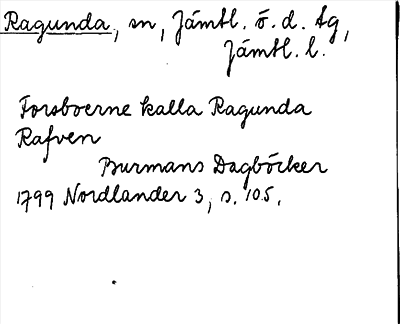 Ragunda, sn, Jämtl. ö. d. tg,
Jämtl. l.
Forsboerne kalla Ragunda
Rafven
Burmans Dagböcker
1799 Nordlander 3, s. 105.